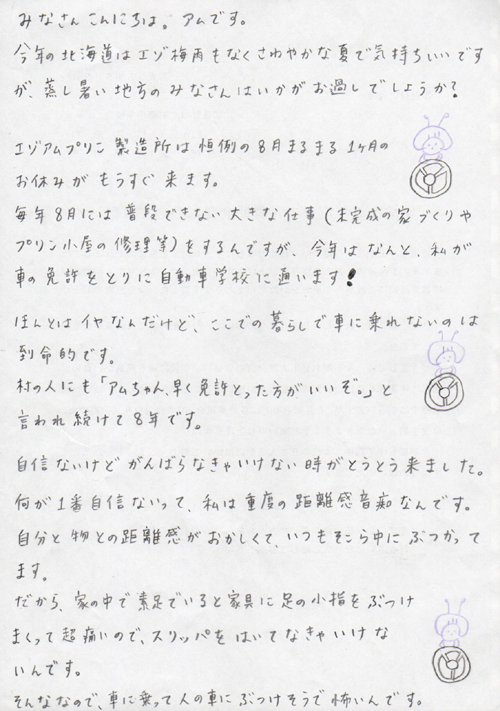 みなさんこんにちは。アムです。
今年の北海道はエゾ梅雨もなくさわやかな夏で気持ちいいです
が、蒸し暑い地方のみなさんはいかがお過しでしょうか?
エゾアムプリン製造所は恒例の8月まるまる1ヶ月の
お休みがもうすぐ来ます。
毎年8月には普段できない大きな仕事(未完成の家づくりや
プリン小屋の修理等)をするんですが、今年はなんと、私が
車の免許をとりに自動車学校に通います!
ほんとはイヤなんだけど、ここでの暮らしで車に乗れないのは
到命的です。
村の人にも「アムちゃん、早く免許とった方がいいぞ。」と
言われ続けて8年です。
自信ないけどがんばらなきゃいけない時がとうとう来ました。
何が1番自信ないって、私は重度の距離感音痴なんです。
自分と物との距離感がおかしくて、いつもそこら中にぶつかって
ます。
だから、家の中で素足でいると家具に足の小指をぶつけ
まくって超痛いので、スリッパをはいてなきゃいけな
いんです。
そんななので、車に乗って人の車にぶつけそうで怖いんです。